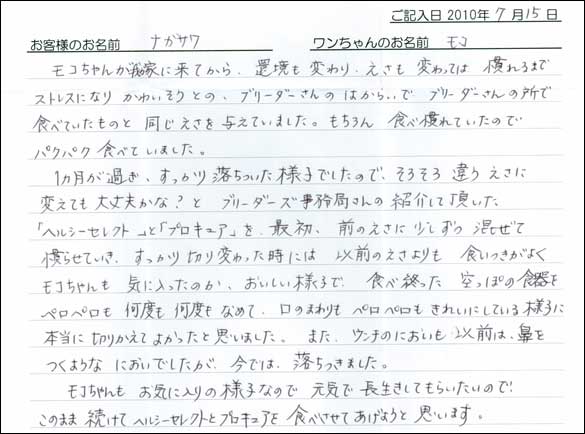 ご記入日 2010年 7月 15日
お客様のお名前 ナガサワ ワンちゃんのお名前 モコ
モコちゃんが我家に来てから、環境も変わり、えさも 変わっては 慣れるまで
ストレスになり かわいそうとの、ブリーダーさんの はからいで ブリーダーさんの所で
食べていたものと 同じえさを与えていました。もちろん 食べ慣れていたので
パクパク 食べていました。
1ヵ月が過ぎ、すっかり 落ちついた様子でしたので、そろそろ 違う えさに
変えても 大丈夫かな？と ブリーダーズ事務局さんの 紹介して頂いた
「ヘルシーセレクト」と「プロキュア」を、最初、前のえさに 少しずつ 混ぜて
慣らせていき、すっかり切り変わった時には 以前のえさよりも 食いつきがよく
モコちゃんも 気に入ったのか、おいしい様子で、食べ終った 空っぽの食器を
ペロペロも 何度も 何度も なめて、口のまわりも ペロペロも きれいにしている 様子に
本当に 切りかえて よかったと思いました。また、ウンチのにおいも 以前は、鼻を
つくような においでしたが、今では、落ちつきました。
モコちゃんも お気に入りの様子なので 元気で 長生きしてもらいたいので!
このまま 続けて ヘルシーセレクトとプロキュアを 食べさせてあげようと 思います。